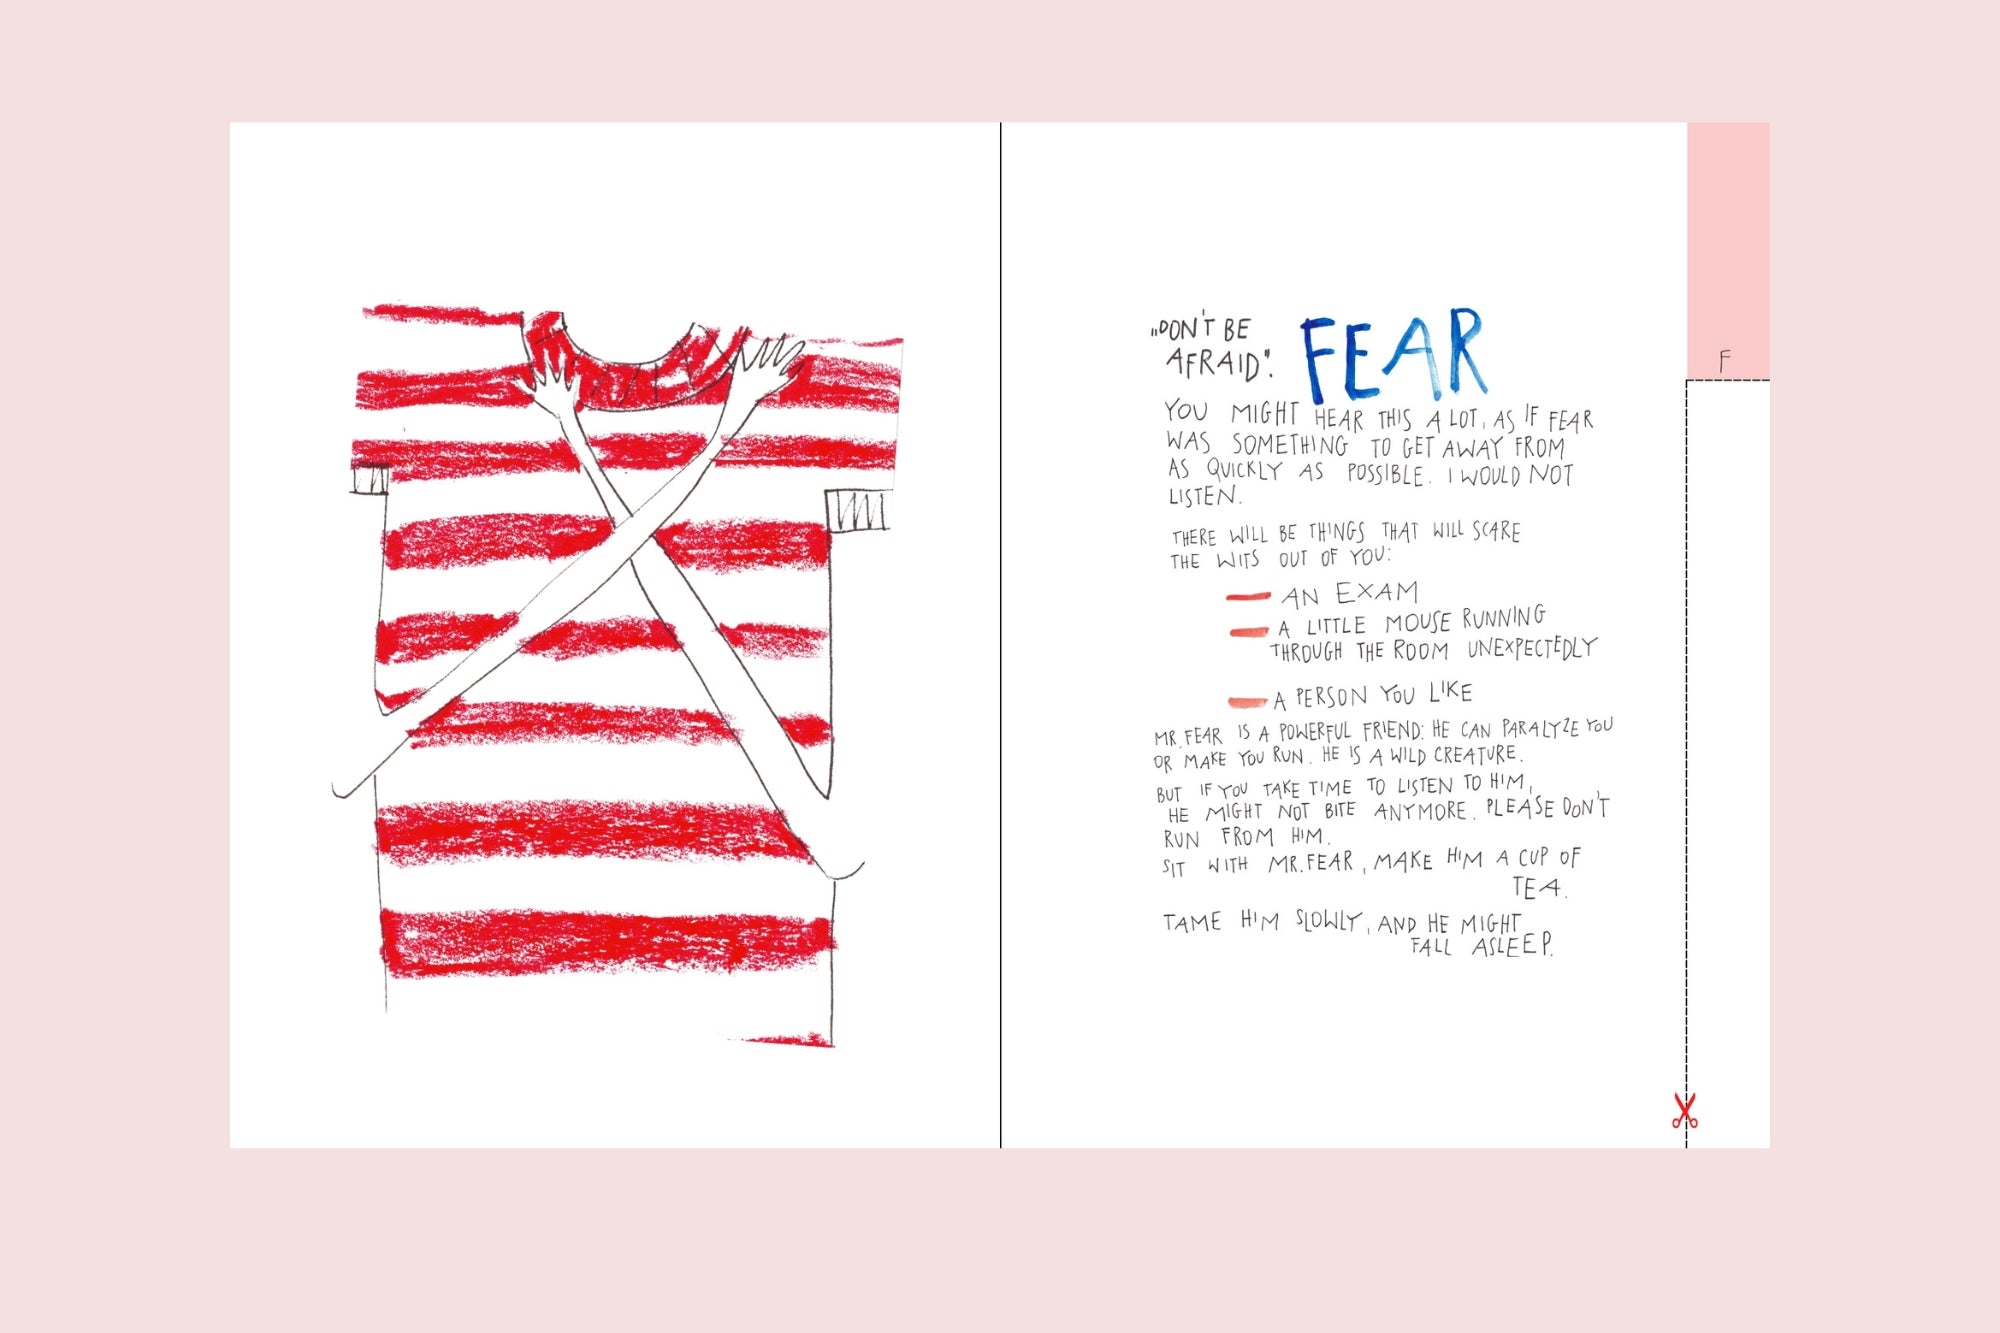 „DON'T BE
AFRAID".
FEAR
F
YOU MIGHT HEAR THIS A LOT, AS IF FEAR
WAS SOMETHING TO GET AWAY FROM
AS QUICKLY AS POSSIBLE. I WOULD NOT
LISTEN.
THERE WILL BE THINGS THAT WILL SCARE
THE WITS OUT OF YOU:
AN EXAM
A LITTLE MOUSE RUNNING
THROUGH THE ROOM UNEXPECTEDLY
A PERSON YOU LIKE
MR. FEAR IS A POWERFUL FRIEND: HE CAN PARALYZE YOU
OR MAKE YOU RUN. HE IS A WILD CREATURE.
BUT IF YOU TAKE TIME TO LISTEN TO HIM,
HE MIGHT NOT BITE ANYMORE. PLEASE DON'T
RUN FROM HIM.
SIT WITH MR. FEAR, MAKE HIM A CUP OF
TEA.
TAME HIM SLOWLY, AND HE MIGHT
FALL ASLEEP.